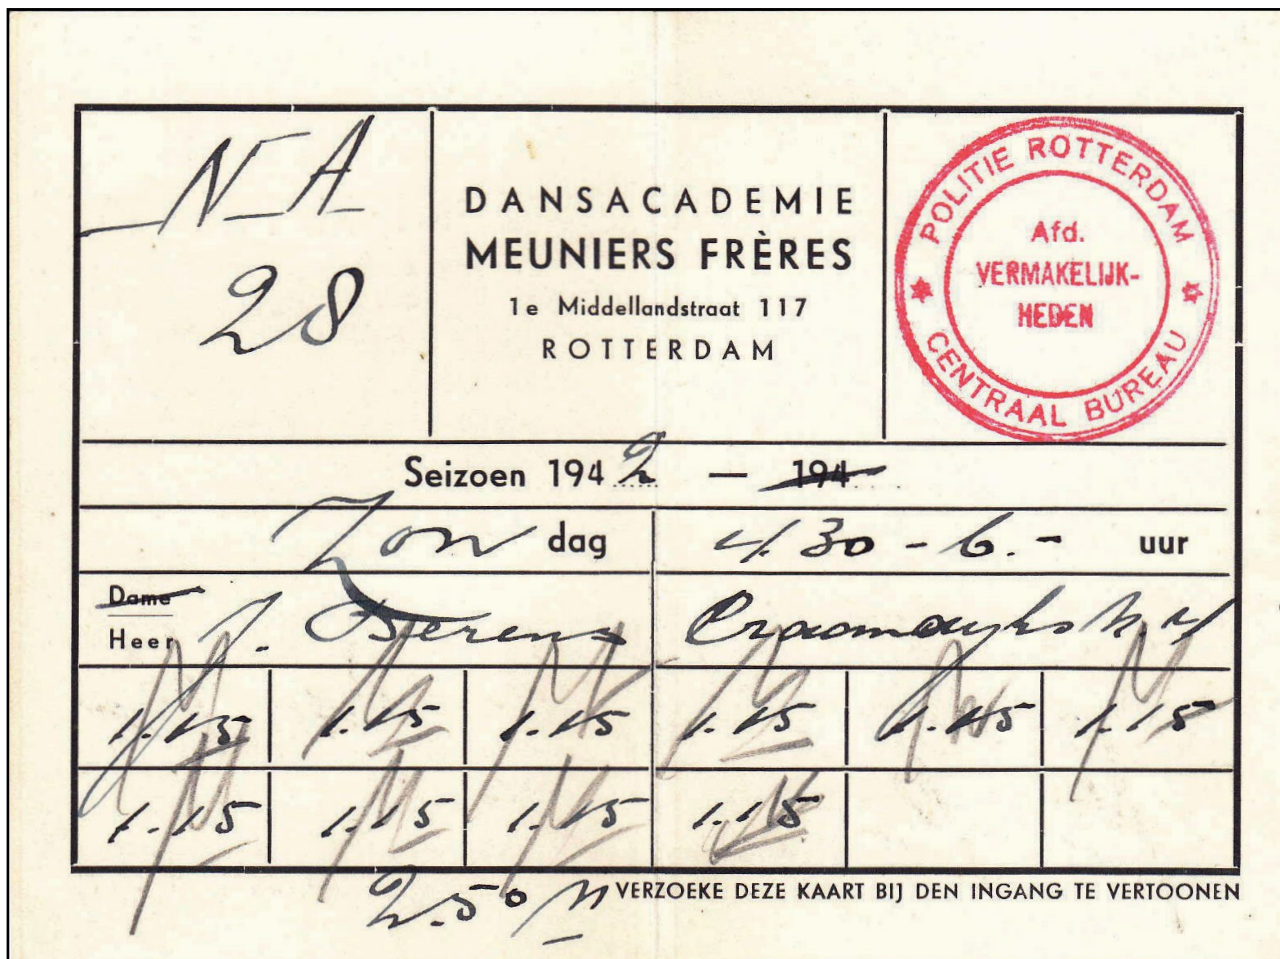 N A
28
DANSACADEMIE
MEUNIERS FRÈRES
1e Middellandstraat 117
ROTTERDAM
POLITIE ROTTERDAM
Afd.
VERMAKELIJK-
HEDEN
CENTRAAL BUREAU
Seizoen 1942 — 194
Zondag 4.30 - 6.- uur
Dame
Heer J. Berens
1.15 1.15 1.15 1.15 1.15 1.15
1.15 1.15 1.15 1.15
2.50
VERZOEKE DEZE KAART BIJ DEN INGANG TE VERTOONEN